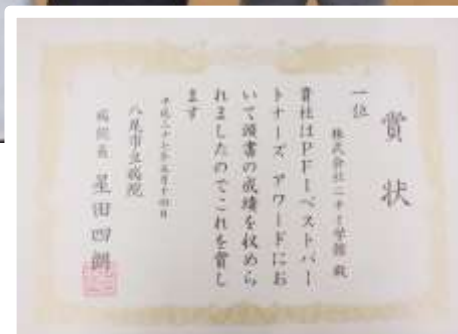 賞状
一位
株式会社ニチイ学館 殿
貴社はPFIベストパー
トナーズ アワードにお
いて頭書の成績を収めら
れましたのでこれを賞し
ます
平成二十七年五月十四日
八尾市立病院
病院長 星田四朗